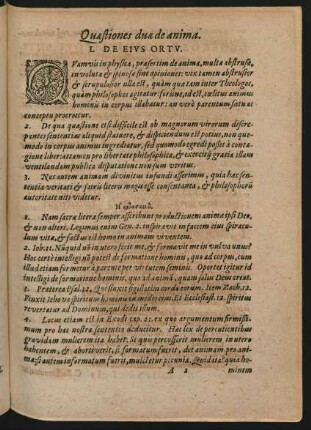 Quæstiones duæ de anima.
I. DE EIVS ORTV.
QVamvis in physica, præsertim de anima, multa abstrusa,
involuta & spinosa sint opiniones: vix tamen abstrusior
& scrupulosior ulla est, quàm quæ tam inter Theologos,
quàm philosophos agitatur: serione, id est, cælitus animus
hominis in corpus illabatur: an verò parentum satu ac
conceptu procreetur.
2. De qua quæstione etsi difficile est ob magnorum virorum discre-
pantes sententias aliquid statuere, & dispiciendum est potius, non quo-
modo in corpus animus ingrediatur, sed quomodo egredi possit à conta-
gione liber: attamen pro libertate philosophica, & exercitij gratia illam
ventilandam publica disputatione non sum veritus.
3. Nos autem animam divinitus infundi asserimus, quia hæc sen-
tentia veritati & sacris literis magis esse consentanea, & philosophorũ
autoritate niti videtur.
1. Nam sacræ literæ semper asseribunt productionem animæ ipsi Deo,
& non alteri. Legimus enim Gen. 2. inspiravit in faciem eius spiracu-
lum vitæ, & factus est homo in animam viventem.
2. Iob. 31. Nũquid nõ in utero fecit me, & formavit me in vulva unus?
Hoc certè intelligi nõ potest de formatione hominis, quo ad corpus, cum
illud etiam formetur à parente per virtutem seminis. Oportet igitur id
intelligi de formatione hominis, quo ad animã, quam solus Deus creat.
3. Præterea Psal. 32. Qui finxit sigillatim corda eorum. Item Zach. 12.
Finxit Iehova spiritum hominis in medio eius. Et Ecclesiast. 12. spiritus
revertatur ad Dominum, qui dedit illum.
4. Locus etiam est in Exodi cap. 21. ex quo argumentum firmissi-
mum pro hac nostra sententia deducitur. Hac lex de percutientibus
gravidam mulierem ita habet. Si quis percusserit mulierem in utero
habentem, & abortiverit, si formatum fuerit, det animam pro ani-
ma: si autem informatum fuerit, mulctetur pecunia. Quid ita? quia ho-
A 2 minem